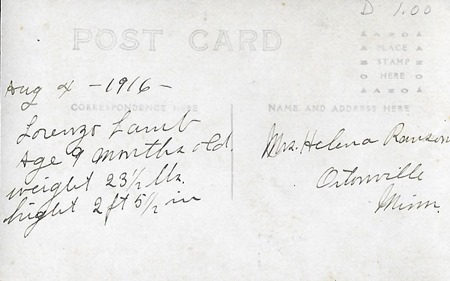 D 1.00
POST CARD
PLACE
STAMP
HERE
Aug 4 - 1916 -
CORRESPONDENCE HERE
NAME AND ADDRESS HERE
Lorenzo Lamb
Age 9 months old.
weight 23 1/2 lbs.
hight 2 ft 5 1/2 in
Mrs. Helena Ranson
Ortonville
Minn.